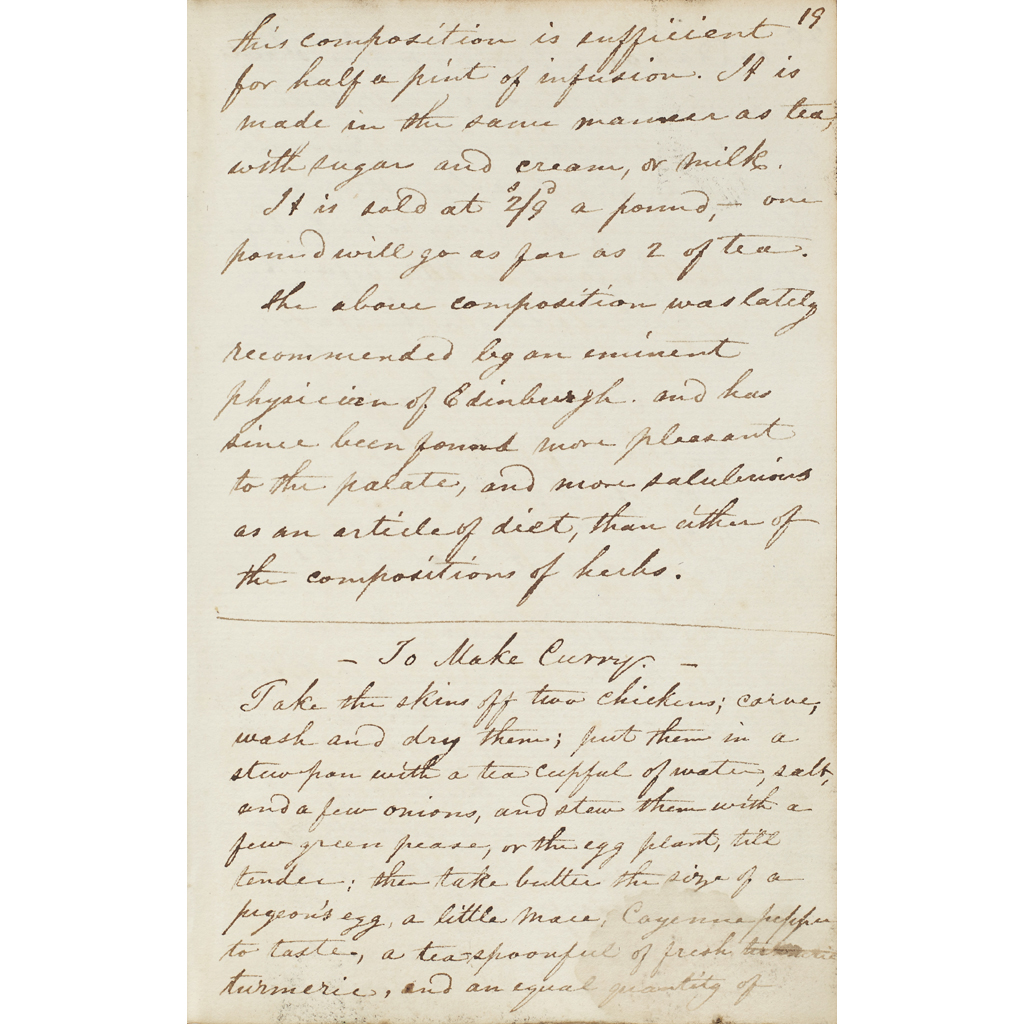 19
this composition is sufficient
for half a pint of infusion. It is
made in the same manner as tea,
with sugar and cream, or milk.
It is sold at 2s/9d a pound, – one
pound will go as far as 2 of tea.
the above composition was lately
recommended by an eminent
physician of Edinburgh. and has
since been found more pleasant
to the palate, and more salubrious
as an article of diet, than either of
the compositions of herbs.
– To Make Curry. –
Take the skins off two chickens; carve,
wash and dry them; put them in a
stew pan with a tea cupful of water, salt,
and a few onions, and stew them with a
few green pease, or the egg plant, till
tender; then take butter the size of a
pigeon's egg, a little mace, Cayenne pepper
to taste, a tea-spoonful of fresh
turmeric, and an equal quantity of